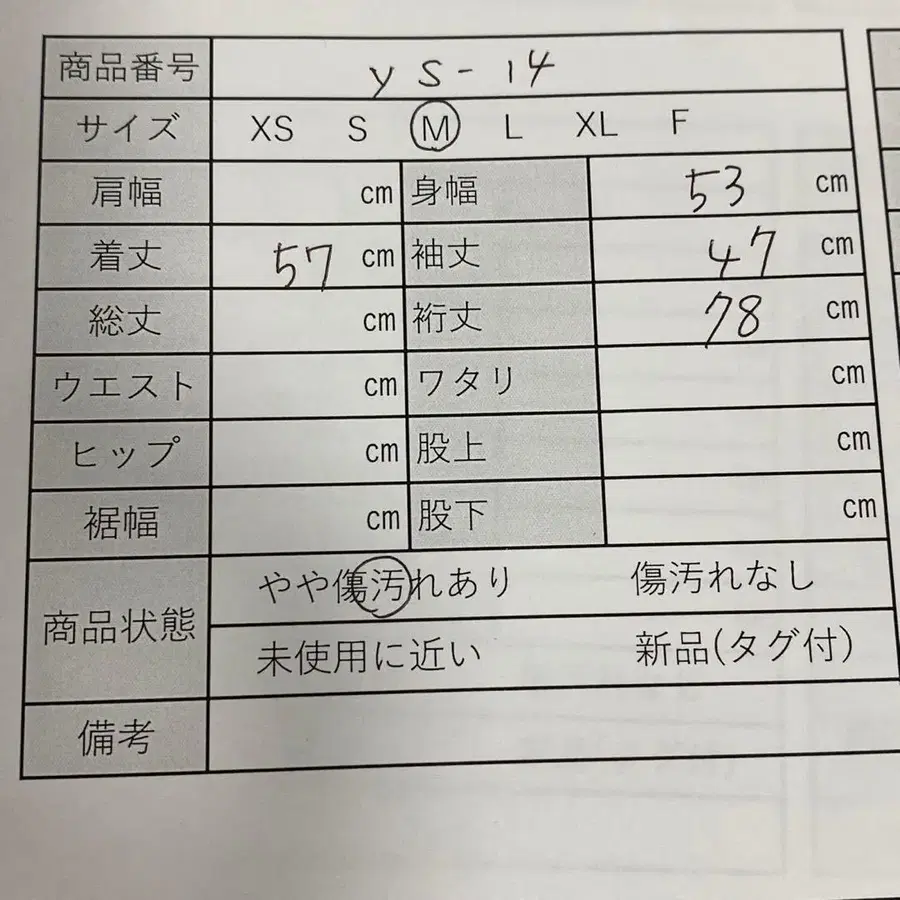 商品番号 ys-14
サイズ XS S M L XL F
肩幅 cm 身幅 53 cm
着丈 57 cm 袖丈 47 cm
総丈 cm 裄丈 78 cm
ウエスト cm ワタリ cm
ヒップ cm 股上 cm
裾幅 cm 股下 cm
商品状態
やや傷汚れあり 傷汚れなし
未使用に近い 新品(タグ付)
備考